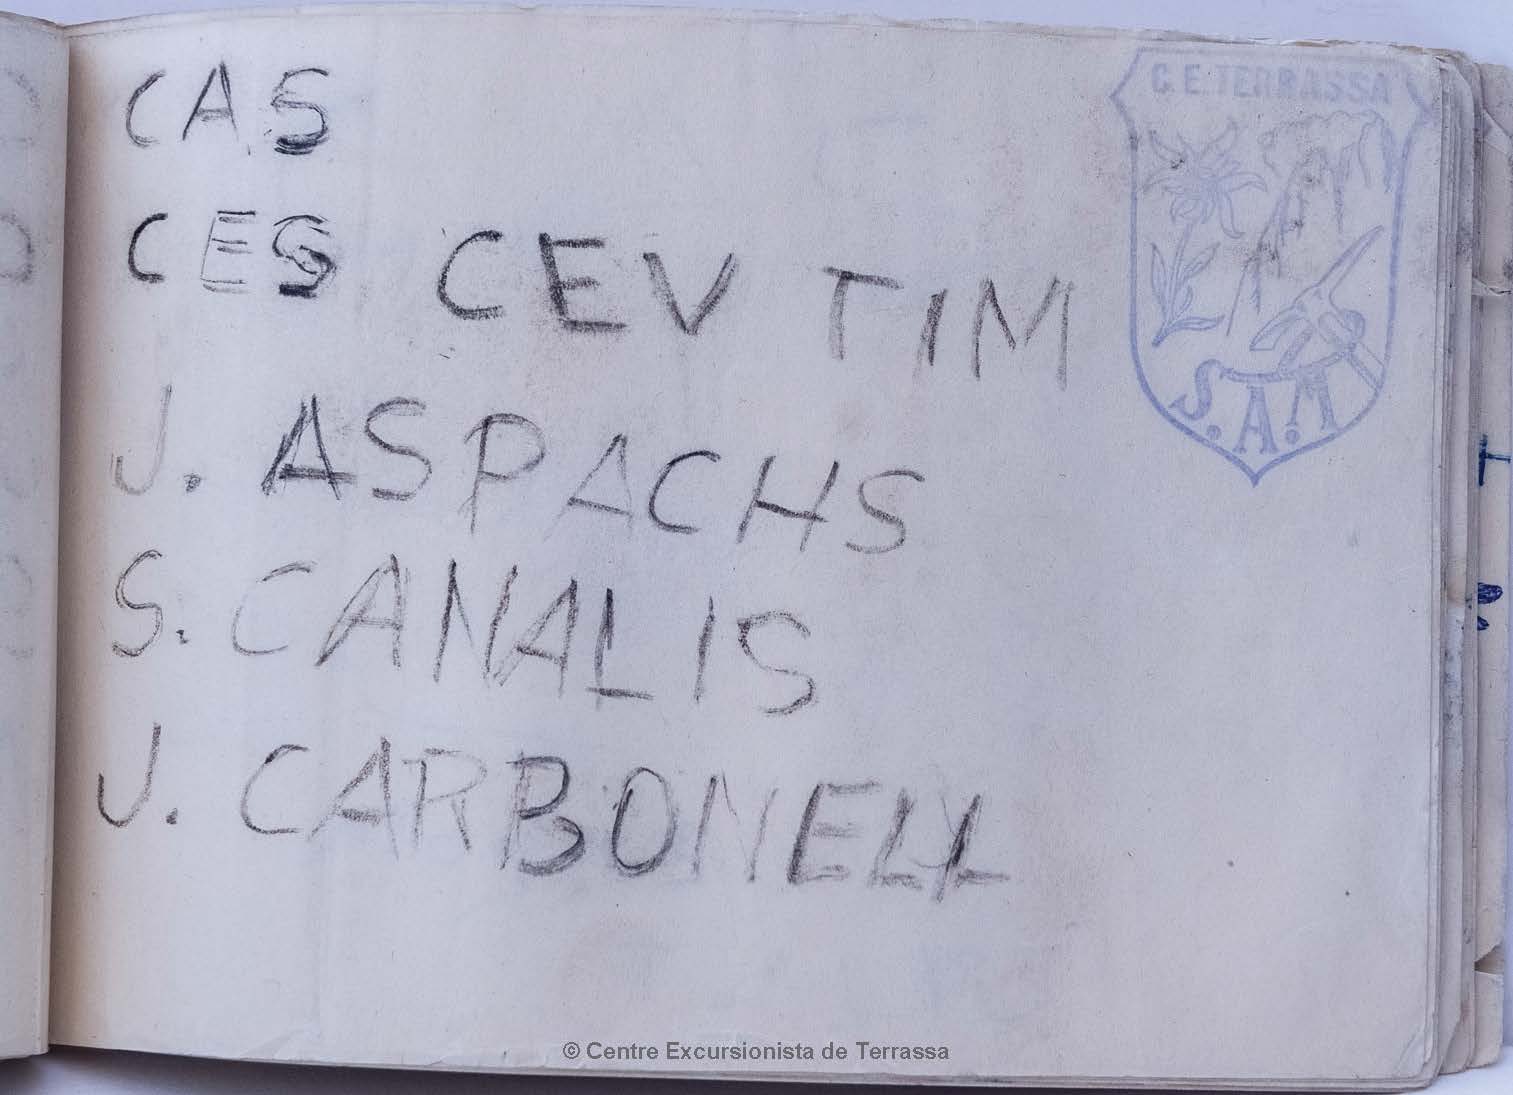 CAS
C.E. TERRASSA
CES CEV TIM
S.A.M
J. ASPACHS
S. CANALIS
J. CARBONELL
© Centre Excursionista de Terrassa